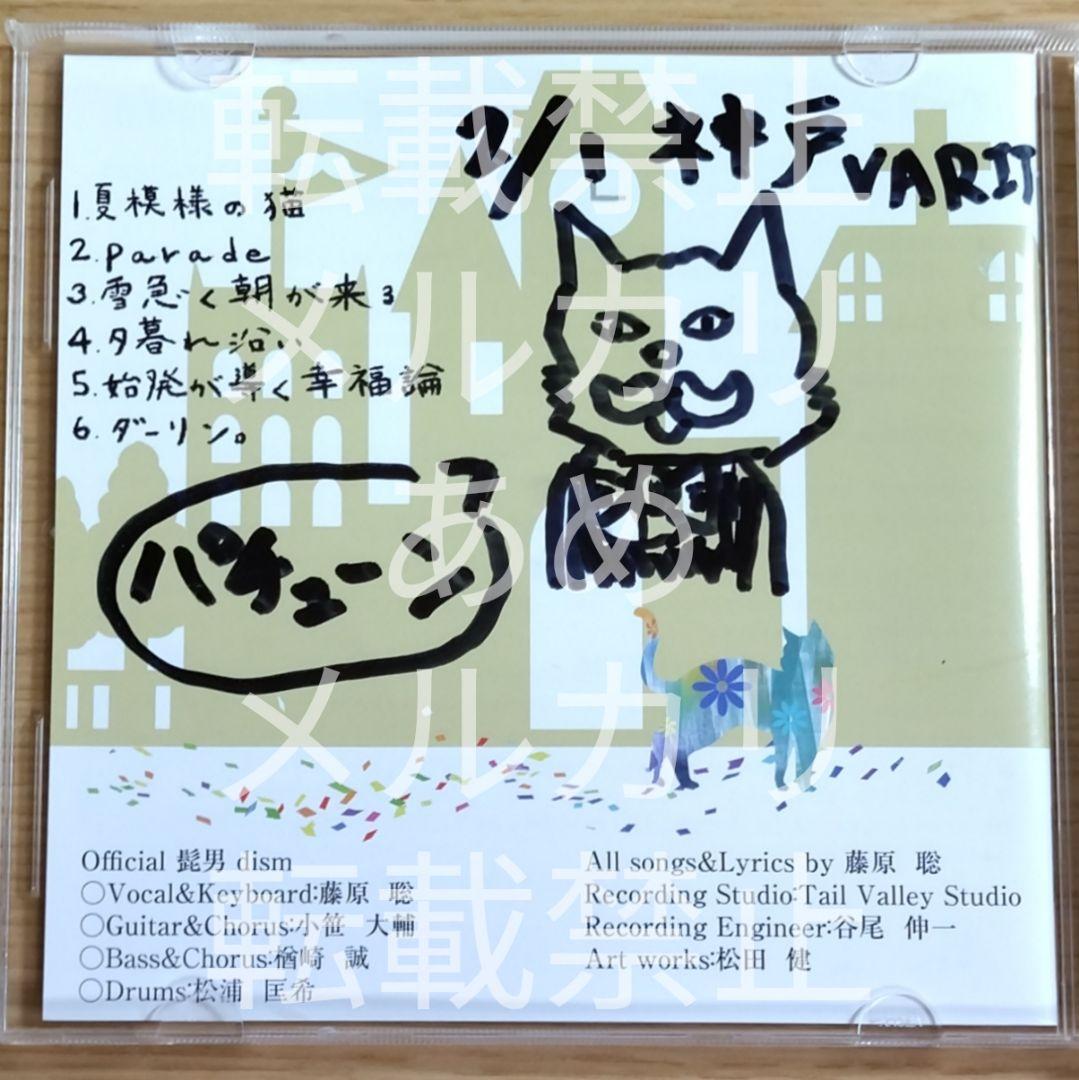 転載禁止
2/1 神戸 VARIT
1.夏模様の猫
2.parade
3.雪急ぐ朝が来る
4.夕暮れ沿い
5.始発が導く幸福論
6.ダーリン。
メルカリ
あめ
パチューン
メルカリ
Official 髭男 dism
○Vocal&Keyboard:藤原 聡
○Guitar&Chorus:小笹 大輔
○Bass&Chorus:楢﨑 誠
○Drums:松浦 匡希
All songs&Lyrics by 藤原 聡
Recording Studio:Tail Valley Studio
Recording Engineer:谷尾 伸一
Art works:松田 健
転載禁止